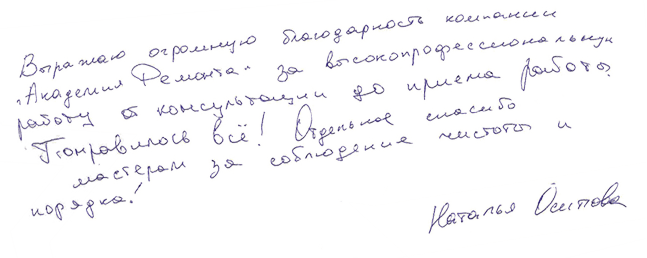 Выражаю огромную благодарность компании
"Академия Ремонта" за высокопрофессиональную
работу от консультации до приема работы.
Понравилось всё! Отдельное спасибо
мастерам за соблюдение чистоты и
порядка!
Наталья Осипова